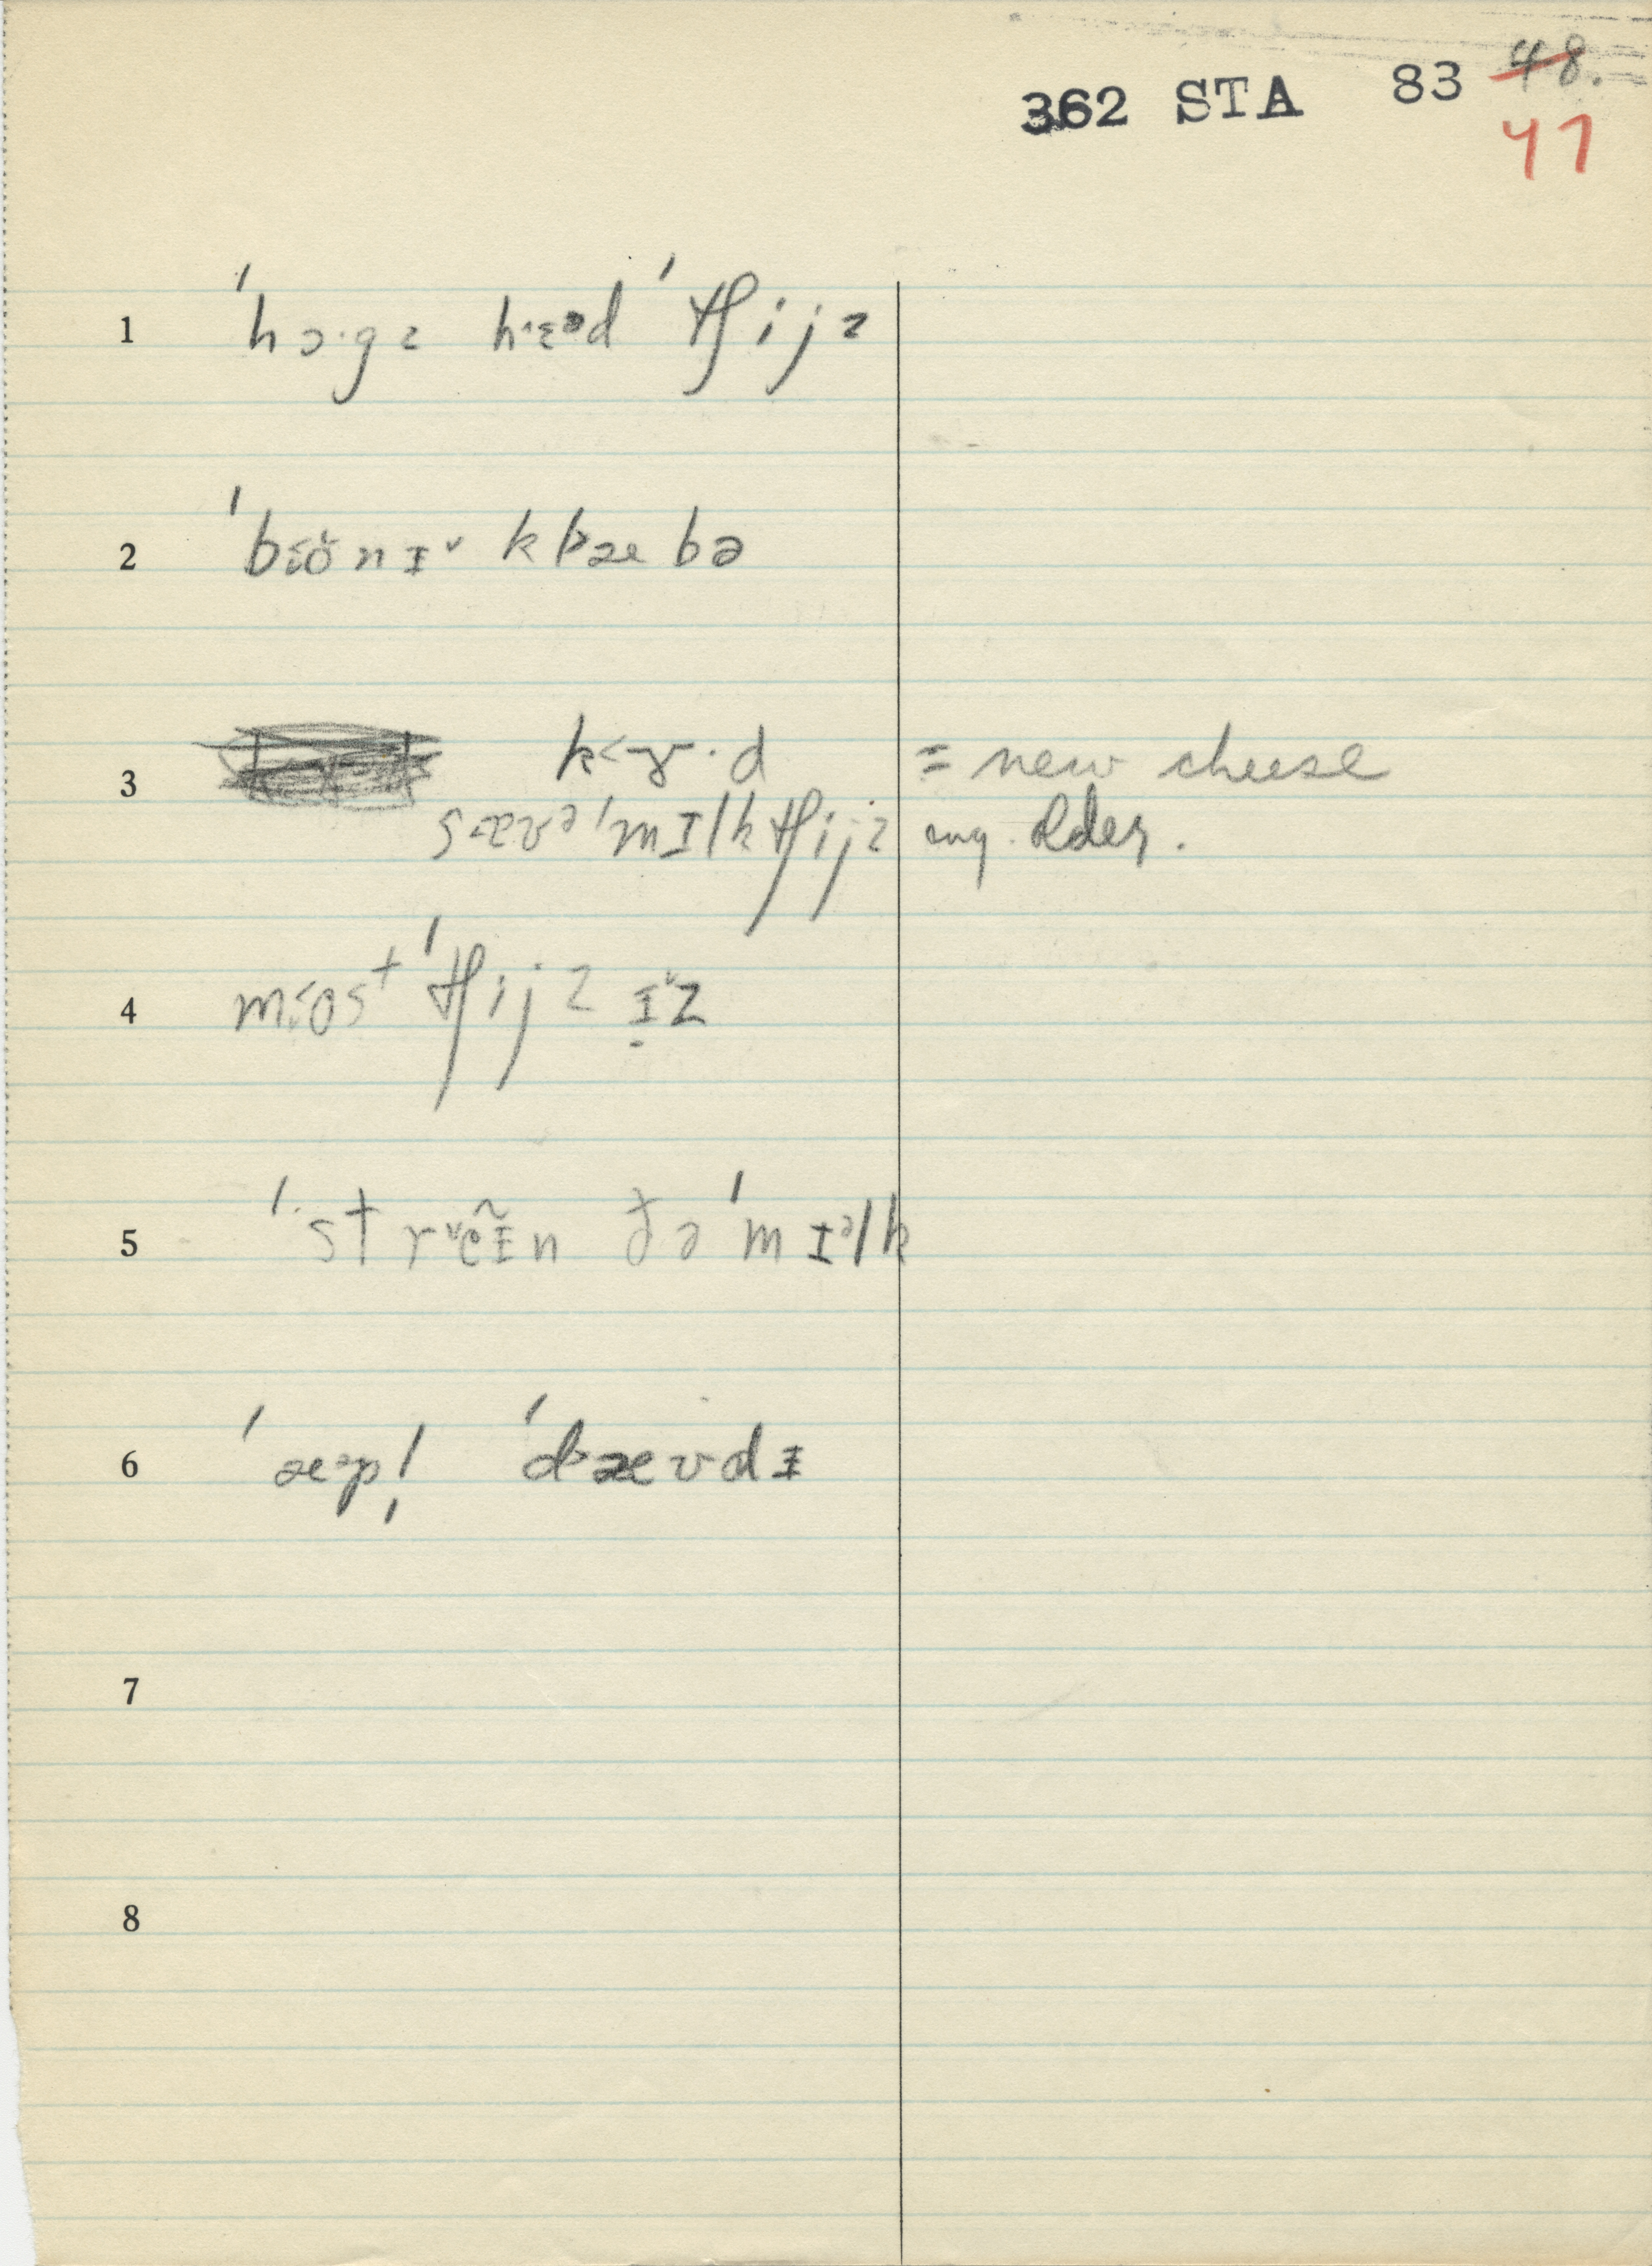 362 STA 83 48.
47
1 ˈhɔ·gz hɛəd ˈtʃijz
2 ˈbɵnɪ˅ kɫæbə
3 k<ɤ·d = new cheese
sævəˈmɪlk tʃijz any older.
4 most ˈtʃijz ɪ˅z
5 ˈstrẽɪn ðəˈmɪᵊlk
6 ˈæᵊpl̩ ˈdævdɪ
7
8